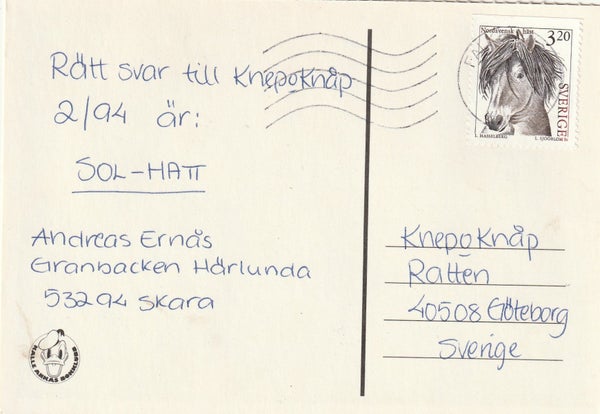 Rätt svar till KnepoKnåp
2/94 är:
SOL-HATT
Andreas Ernås
Granbacken Härlunda
53294 Skara
KALLE ANKAS BOKKLUBB
Nordsvensk häst
3.20
SVERIGE
HASSELBERG
L. SJÖÖBLOM
KnepoKnåp
Ratten
40508 Göteborg
Sverige